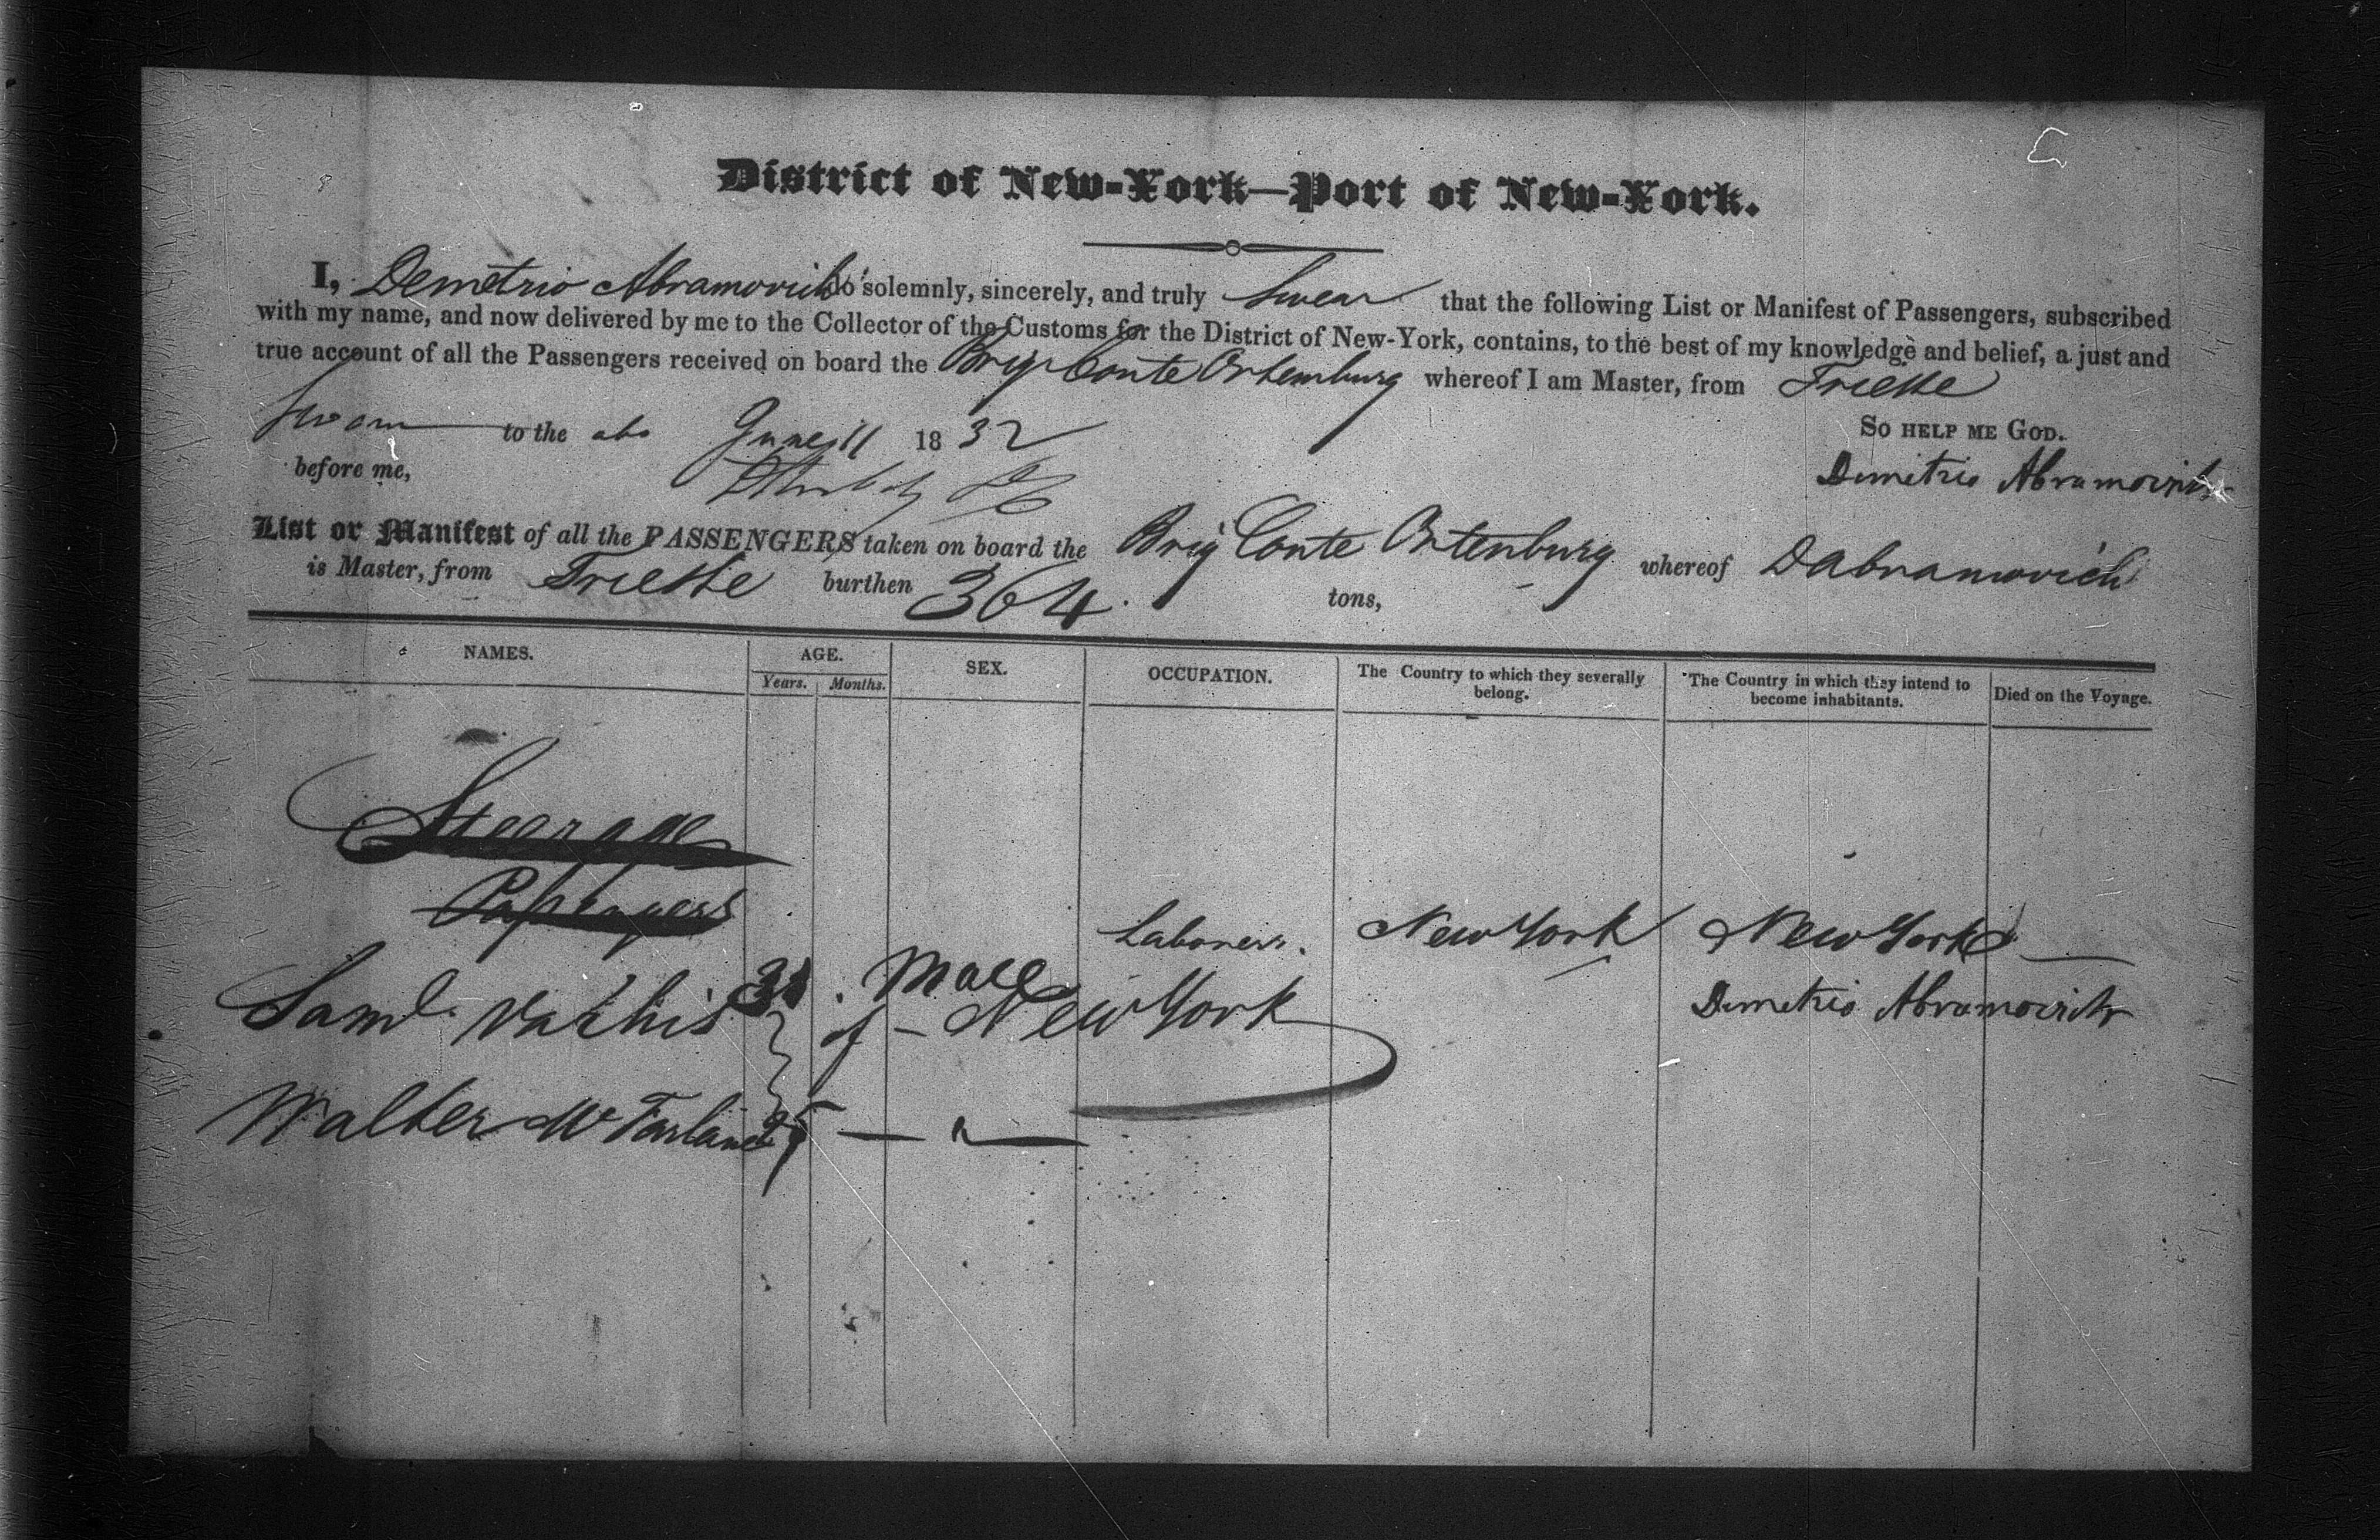 District of New-York—Port of New-York.
I, Demetrio Abramovich do solemnly, sincerely, and truly Swear that the following List or Manifest of Passengers, subscribed
with my name, and now delivered by me to the Collector of the Customs for the District of New-York, contains, to the best of my knowledge and belief, a just and
true account of all the Passengers received on board the Brig Conte Ortemburg whereof I am Master, from Trieste
Sworn to the abo June 11 1832 So help me God.
before me, Demetrio Abramovich
List or Manifest of all the PASSENGERS taken on board the Brig Conte Ortenburg whereof D Abramovich
is Master, from Trieste burthen 364 tons,
NAMES. AGE. SEX. OCCUPATION. The Country to which they severally belong. The Country in which they intend to become inhabitants. Died on the Voyage.
Years. Months.
Steerage
Passengers
Laborers. New York New York
Saml. 31 Male
of - New York Demetrio Abramovich
Walter McFarland 25 — " —